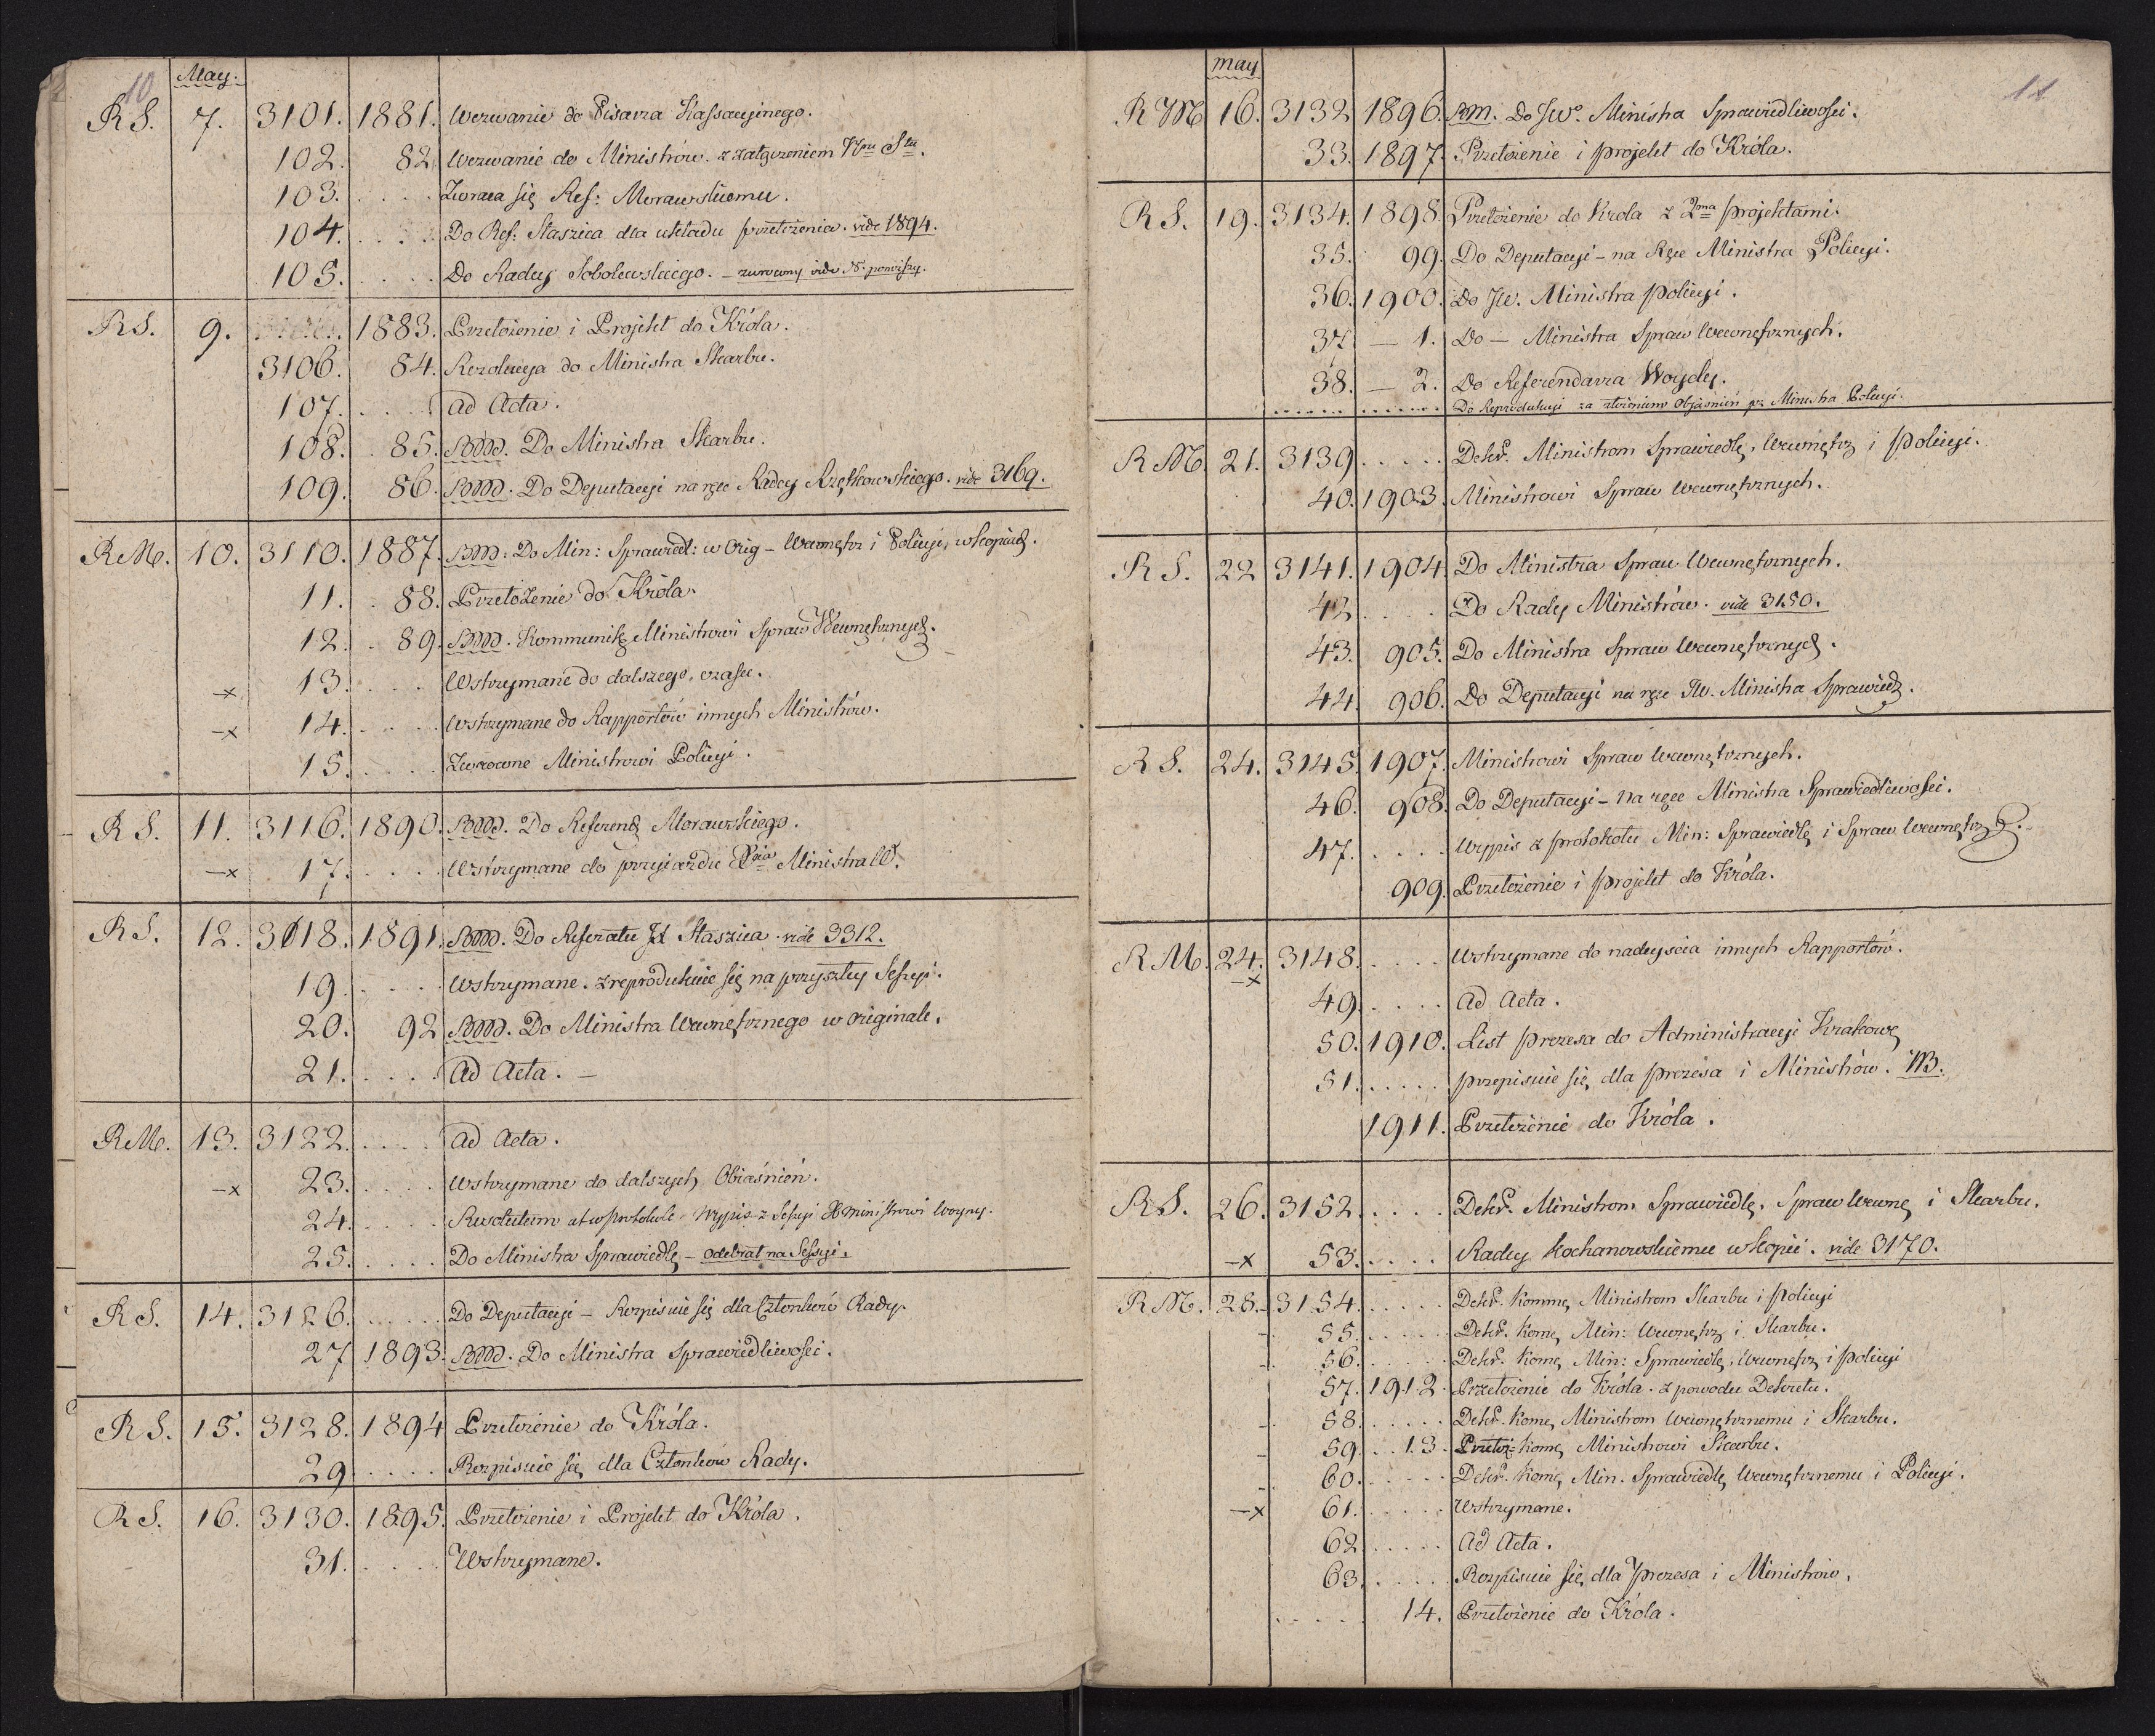 10
May.
R S. 7. 3101. 1881. Wezwanie do Pisarza Kassacyinego.
102. 82. Wezwanie do Ministrów z załączeniem
103. . . . . Zwraca się Ref: Morawskiemu.
104. . . . . Do Ref: Staszica dla układu przełożenia. vide 1894.
105. . . . . Do Radcy Sobolewskiego. – zwrocony vide N. powiższy.
R S. 9. 1883. Przełożenie i Projekt do Króla.
3106. 84. Rezolucya do Ministra Skarbu.
107. . . . . Ad Acta.
108. . 85. BMD. Do Ministra Skarbu.
109. 86. BMD. Do Deputacyi na ręce Radcy Rzętkowskiego. vide 3169.
R M. 10. 3110. 1887. BMD. Do Min: Sprawiedl: w Orig – Wewnętrz i Policyi, w kopiach.
11. . 88. Przełożenie do Króla.
12. . 89. BMD. Kommunik Ministrowi Spraw Wewnętrznych.
–x 13. . . . Wstrzymane do dalszego czasu.
–x 14. . . . . Wstrzymane do Rapportów innych Ministrów.
15. . . . . Zwrocone Ministrowi Policyi.
R S. 11. 3116. 1890. BMD. Do Referend Morawskiego.
–x 17. . . . . Wstrzymane do przyiazdu Ministra W.
R S. 12. 3118. 1891. BMD. Do Referatu Staszica. vide 3312.
19. . . . . Wstrzymane. zreprodukuie się na przyszłey Sessyi.
20. 92 BMD. Do Ministra Wewnętrznego w originale.
21. . . . . Ad Acta. –
R M. 13. 3122. . . . . Ad Acta.
–x 23. . . . . Wstrzymane do dalszych Obiaśnień.
24. . . . . ut w protokule – Wypis z Sessyi Ministrowi Woyny.
25. . . . . Do Ministra Sprawiedlę – odebrał na Sessyi.
R S. 14. 3126. . . . . . Do Deputacyi – Rozpisuie się dla Członków Rady.
27 1893. BMD. Do Ministra Sprawiedliwości.
R S. 15. 3128. 1894 Przełożenie do Króla.
29. . . . . Rozpisuie się dla Członków Rady.
R S. 16. 3130. 1895. Przełożenie i Projekt do Króla.
31. . . . . Wstrzymane.
11
may
R M 16. 3132 1896. BM. Do JWo. Ministra Sprawiedliwości.
33. 1897. Przełożenie i projekt do Króla.
R S. 19. 3134. 1898. Przełożenie do Krola z 2ma projektami.
35. 99. Do Deputacyi – na Ręce Ministra Policyi.
36. 1900. Do JW. Ministra policyi.
37 – 1. Do – Ministra Spraw Wewnętrznych.
38. – 2. Do Referendarza Woydy.
. . . . . . . . . . . . Do Reprodukcyi za złożeniem Objaśnień pz Ministra Policyi.
R M. 21. 3139 . . . . . Dekr. Ministrom Sprawiedlę. Wewnętrz i policyi.
40. 1903. Ministrowi Spraw Wewnętrznych.
R S. 22 3141. 1904. Do Ministra Spraw Wewnętrznych.
42. . . . . Do Rady Ministrów. vide 3150.
43. 905. Do Ministra Spraw Wewnętrznych.
44. 906. Do Deputacyi na ręce JW. Ministra Sprawiedl.
R S. 24. 3145. 1907. Ministrowi Spraw Wewnętrznych.
46. 908. Do Deputacyi – na ręce Ministra Sprawiedliwości.
47. . . . . Wypis z protokołu Min: Sprawiedlę i Spraw Wewnętrz
909. Przełożenie i projekt do Króla.
R M. 24. 3148. . . . . Wstrzymane do nadeyścia innych Rapportów.
–x
49. . . . . Ad Acta.
50. 1910. List prezesa do Administracyi Krakowę
51. . . . . przepisuie się dla prezesa i Ministrów. MB.
1911. Przełożenie do Króla.
R S. 26. 3152. . . . . Dekr. Ministrom Sprawiedlę. Spraw Wewnę i Skarbu.
–x 53. . . . . Radcy Kochanowskiemu w kopii. vide 3170.
R M. 28. 3154. . . . . . Dekr. kommę Ministrom Skarbu i policyi
– 55. . . . . . Dekr. komę Min: Wewnętrz i Skarbu.
– 56. . . . . . Dekr. komę Min: Sprawiedlę. Wewnętrz i policyi
57. 1912. Przełożenie do Króla. z powodu Dekretu.
– 58. . . . . . Dekr. komę Ministrom Wewnętrznemu i Skarbu.
– 59. . . 13. komę Ministrowi Skarbu.
– 60. . . . . . Dekr. komę Min. Sprawiedlę Wewnętrznemu i Policyi.
–x 61. . . . . . Wstrzymane.
62 . . . . . Ad Acta.
63. . . . . . Rozpisuie się dla prezesa i Ministrów.
. . . . . 14. Przełożenie do Króla.